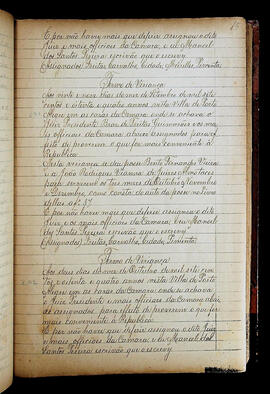 E por não haver mais que deferir assignou o dito
Juiz e mais officiaes da Camara, e eu Manoel
dos Santos Pereira escrivão que o escrevy.
(Assignados) Freitas, Carvalho, Cidade, Pimenta.
Termo de Vereança
Aos vinte e seis dias do mez de Setembro de mil sete
centos e oitenta e quatro annos nesta Villa de Porto
Alegre em as casas da Camara onde se achava o
Juiz Presidente de Freitas Guimarães e os ma
is officiaes da Camara abaixo assignados para ef
feito de proverem o que for mais conveniente á
Republica
Nesta vereança a da posse Bento Fernandes
e a João Rodrigues de Juizes Almotaces
para servirem os tres mezes de Outubro, Novembro
e Dezembro como consta do auto da posse no livro
dellas a fl. 37
E por não haver mais que deferir assignou o dito
Juiz e os mais officiaes da Camara, e eu Manoel
dos Santos Pereira escrivão que o escrevy.
(Assignados) Freitas, Carvalho, Cidade, Pimenta.
Termo de Vereança
Aos dois dias do mez de Outubro de mil sete cen
tos e oitenta e quatro annos nesta Villa de Porto
Alegre em as casas da Camara onde se achava
o Juiz Presidente e mais officiaes da Camara abai
xo assignados, para effeito de proverem o que for
mais conveniente á Republica
E por não haver que deferir assignou o dito Juiz
e mais officiaes da Camara, e eu Manoel dos
Santos Pereira escrivão que o escrevy.